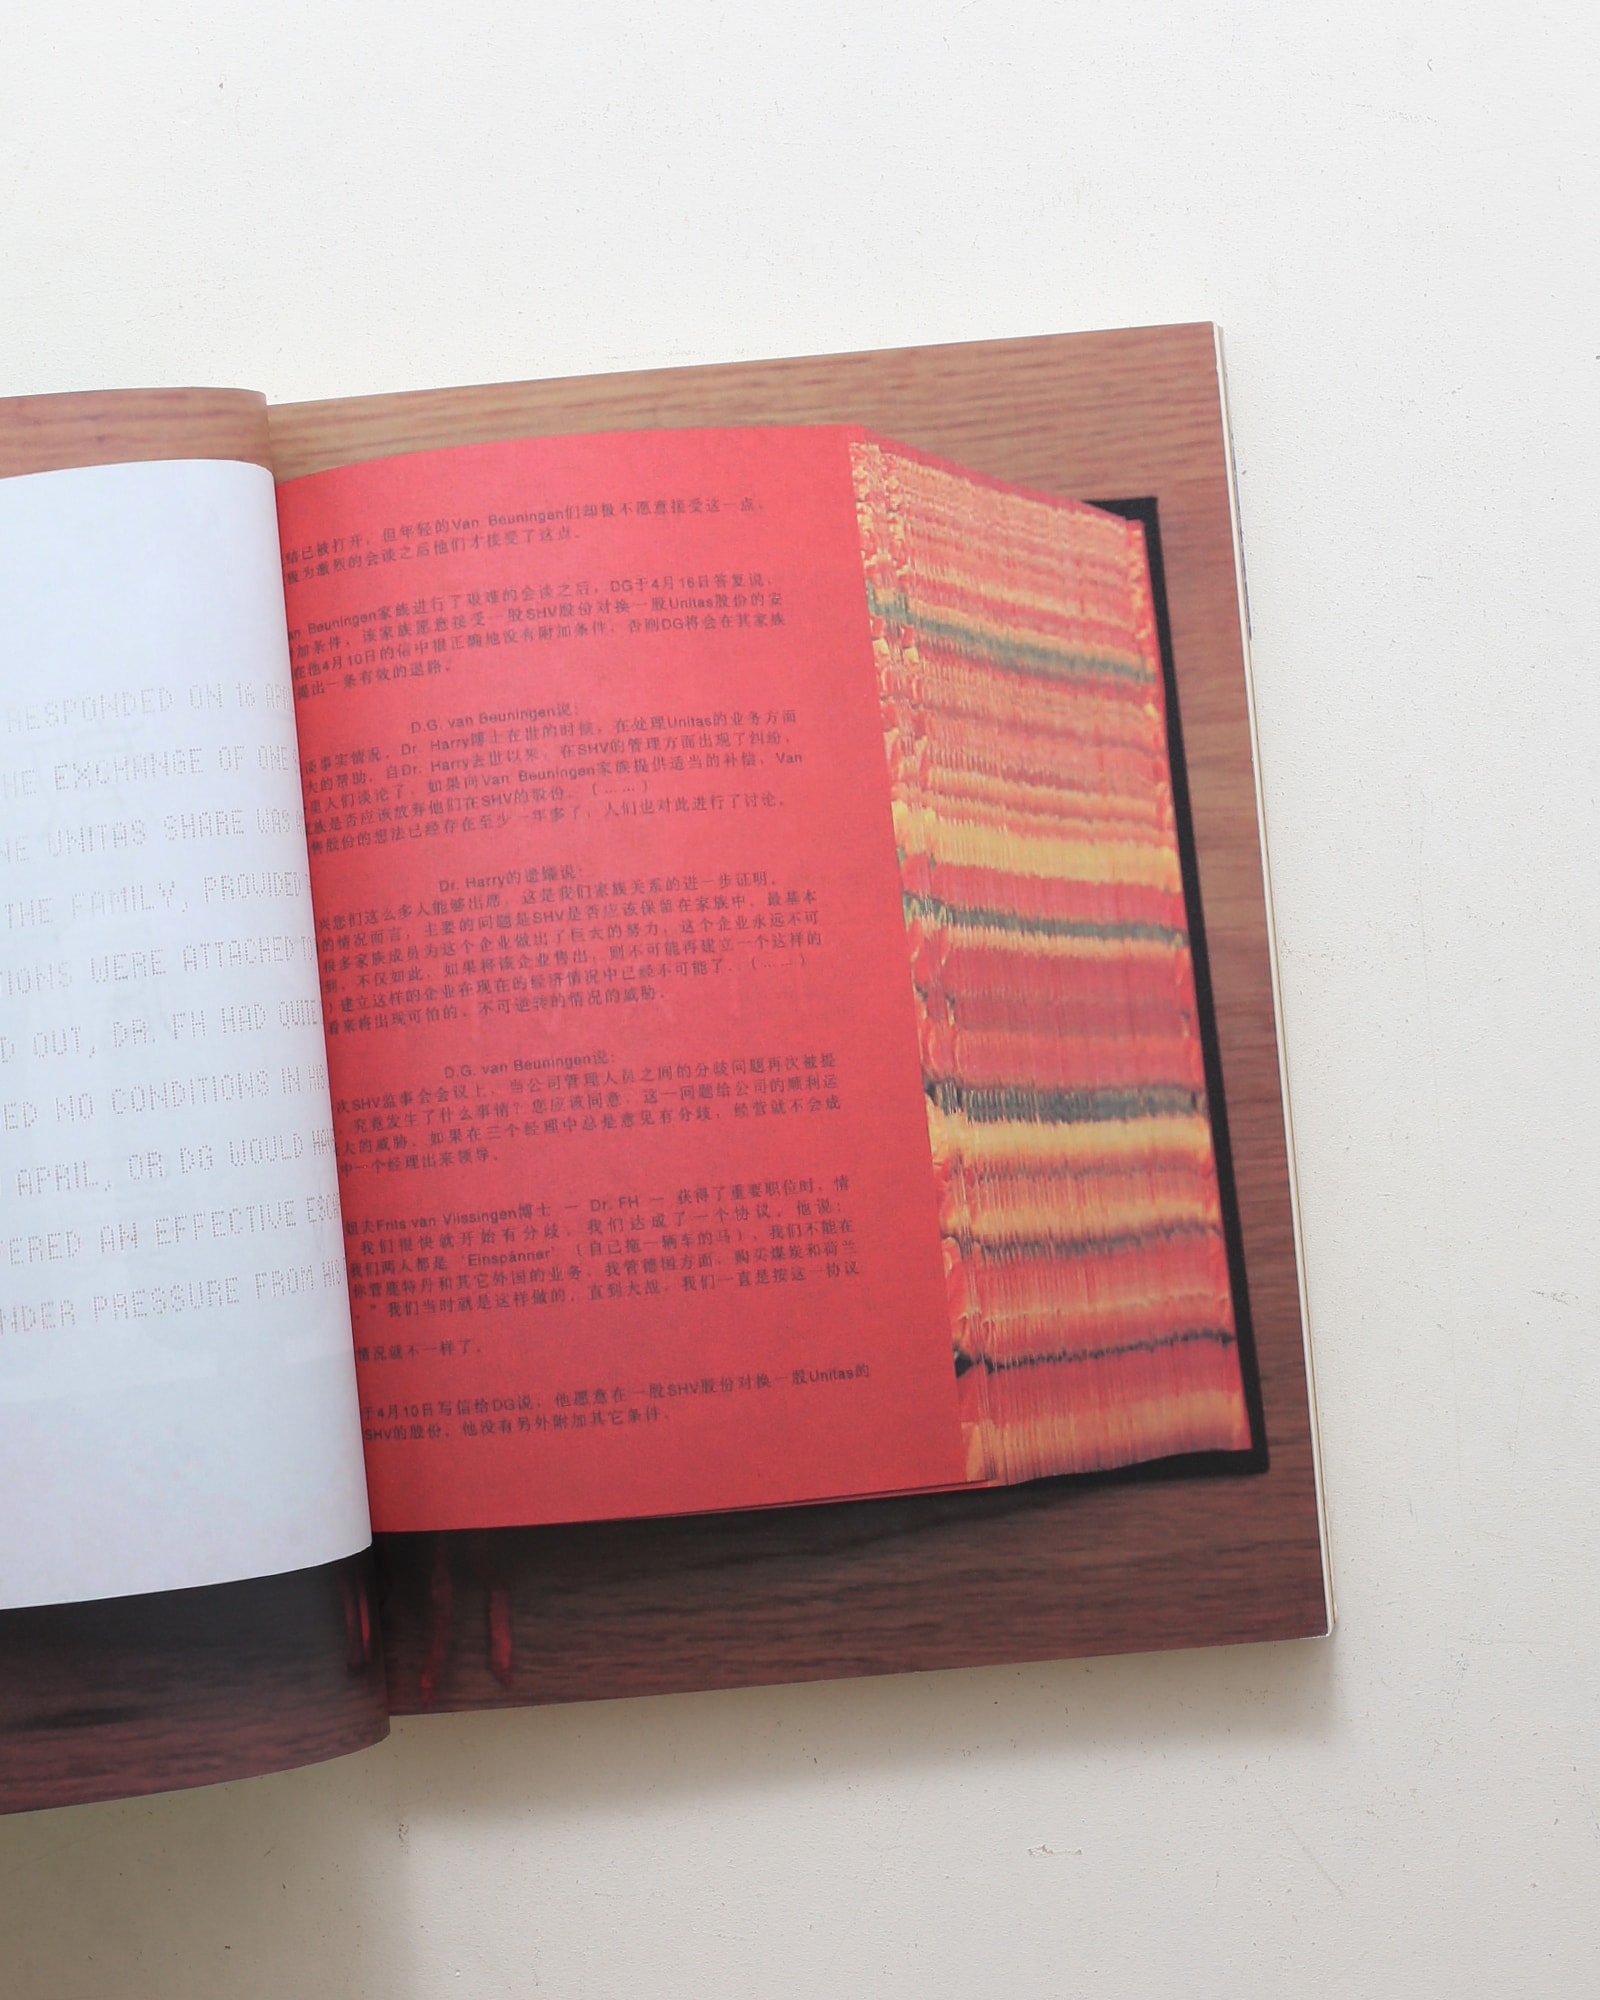 RESPONDED ON 16 APR
HE EXCHANGE OF ONE
NE UNITAS SHARE WAS
THE FAMILY, PROVIDED
IONS WERE ATTACHED TO
D OUT, DR. FH HAD QUIE
ED NO CONDITIONS IN HIS
APRIL, OR DG WOULD HAV
ERED AN EFFECTIVE ESCA
NDER PRESSURE FROM HIS
结已被打开，但年轻的Van Beuningen们却极不愿意接受这一点，
极为激烈的会谈之后他们才接受了这点。
an Beuningen家族进行了艰难的会谈之后，DG于4月16日答复说，
加条件，该家族愿意接受一股SHV股份对换一股Unitas股份的安
在他4月10日的信中很正确地没有附加条件，否则DG将会在其家族
提出一条有效的退路。
D.G. van Beuningen说：
谈事实情况，Dr. Harry博士在世的时候，在处理Unitas的业务方面
大的帮助，自Dr. Harry去世以来，在SHV的管理方面出现了纠纷，
里人们谈论了，如果向Van Beuningen家族提供适当的补偿，Van
族是否应该放弃他们在SHV的股份。（……）
售股份的想法已经存在至少一年多了，人们也对此进行了讨论。
Dr. Harry的遗孀说：
兴您们这么多人能够出席，这是我们家族关系的进一步证明。
的情况而言，主要的问题是SHV是否应该保留在家族中，最基本
很多家族成员为这个企业做出了巨大的努力，这个企业永远不可
到，不仅如此，如果将该企业售出，则不可能再建立一个这样的
）建立这样的企业在现在的经济情况中已经不可能了，（……）
看来将出现可怕的，不可逆转的情况的威胁。
D.G. van Beuningen说：
次SHV监事会会议上，当公司管理人员之间的分歧问题再次被提
，究竟发生了什么事情？您应该同意，这一问题给公司的顺利运
大的威胁，如果在三个经理中总是意见有分歧，经营就不会成
中一个经理出来领导。
姐夫Frits van Vlissingen博士 — Dr. FH — 获得了重要职位时，情
我们很快就开始有分歧，我们达成了一个协议，他说：
我们两人都是‘Einspänner’（自己拖一辆车的马），我们不能在
你管鹿特丹和其它外国的业务，我管德国方面，购买煤炭和荷兰
。”我们当时就是这样做的，直到大战，我们一直是按这一协议
情况就不一样了。
于4月10日写信给DG说，他愿意在一股SHV股份对换一股Unitas的
SHV的股份，他没有另外附加其它条件。